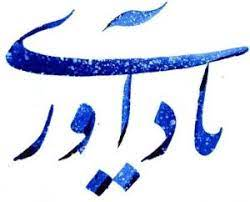 یادآوری